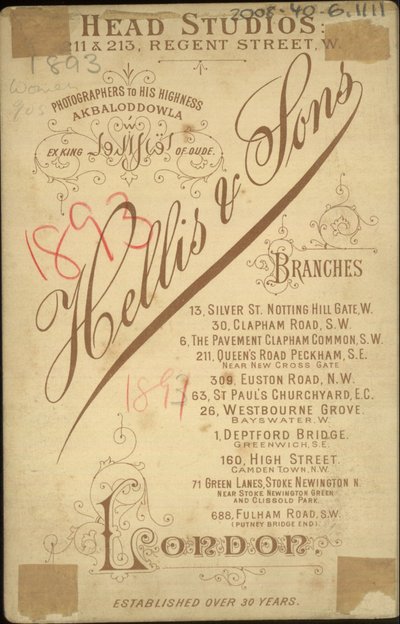 2008-40-6.1111
HEAD STUDIOS:
211 & 213, REGENT STREET, W.
1893
Women
90s
PHOTOGRAPHERS TO HIS HIGHNESS
AKBALODDOWLA
EX KING OF OUDE.
1893
Hellis & Sons
BRANCHES
13, SILVER ST. NOTTING HILL GATE, W.
30, CLAPHAM ROAD, S.W.
6, THE PAVEMENT CLAPHAM COMMON, S.W.
211, QUEEN'S ROAD PECKHAM, S.E.
NEAR NEW CROSS GATE
309, EUSTON ROAD, N.W.
1893
63, ST PAUL'S CHURCHYARD, E.C.
26, WESTBOURNE GROVE.
BAYSWATER, W.
1, DEPTFORD BRIDGE.
GREENWICH, S.E.
160, HIGH STREET.
CAMDEN TOWN, N.W.
71 GREEN LANES, STOKE NEWINGTON N.
NEAR STOKE NEWINGTON GREEN
AND CLISSOLD PARK.
688, FULHAM ROAD, S.W.
(PUTNEY BRIDGE END).
LONDON
ESTABLISHED OVER 30 YEARS.